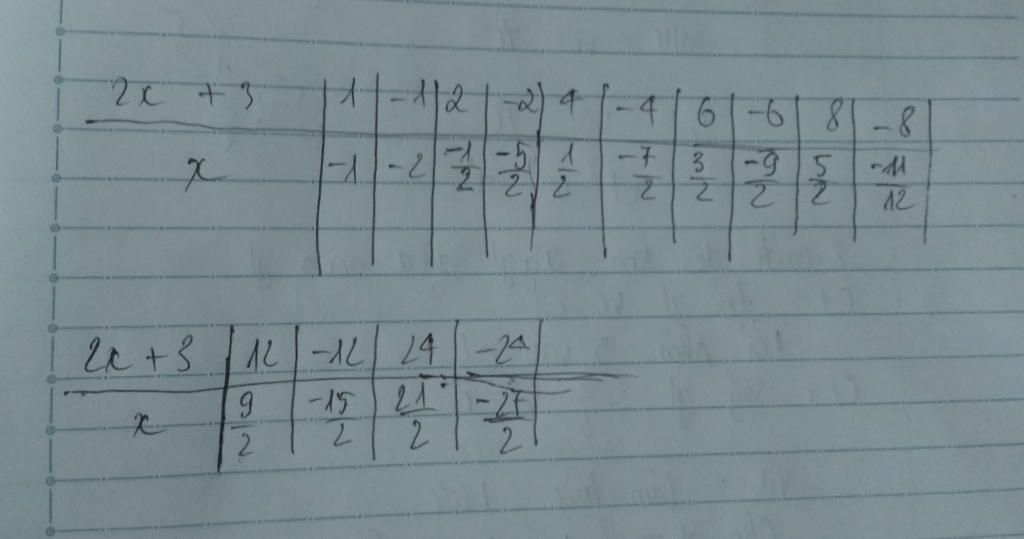 2x + 3 | 1 | -1 | 2 | -2 | 4 | -4 | 6 | -6 | 8 | -8
x | -1 | -2 | -1/2 | -5/2 | 1/2 | -7/2 | 3/2 | -9/2 | 5/2 | -11/12
2x + 3 | 12 | -12 | 24 | -24
x | 9/2 | -15/2 | 21/2 | -27/2